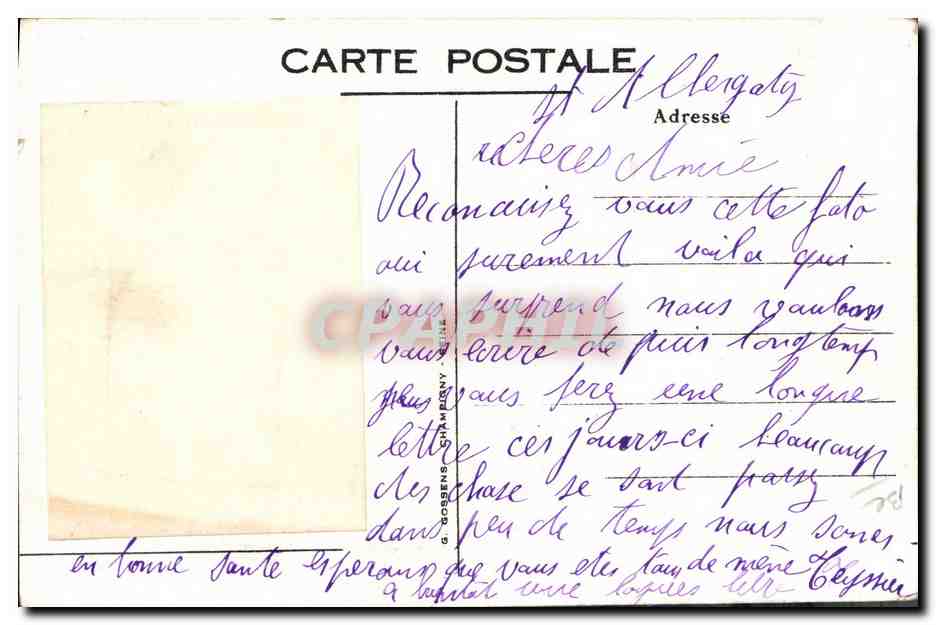 CARTE POSTALE
St Albergaty
Adresse
Cheres Amie
Reconaisez vous cette foto
oui surement voila qui
vous surprend nous voulions
vous écrire de puis longtemp
vous ferez une longue
lettre ces jours-ci beaucoup
des chose se sont passez
dans peu de temps nous somes
en bonne sante esperons que vous etes tous de même Teyssier
a bientot une longues letre
G. GOSSENS, CHAMPIGNY - SEINE
CPAPHIL